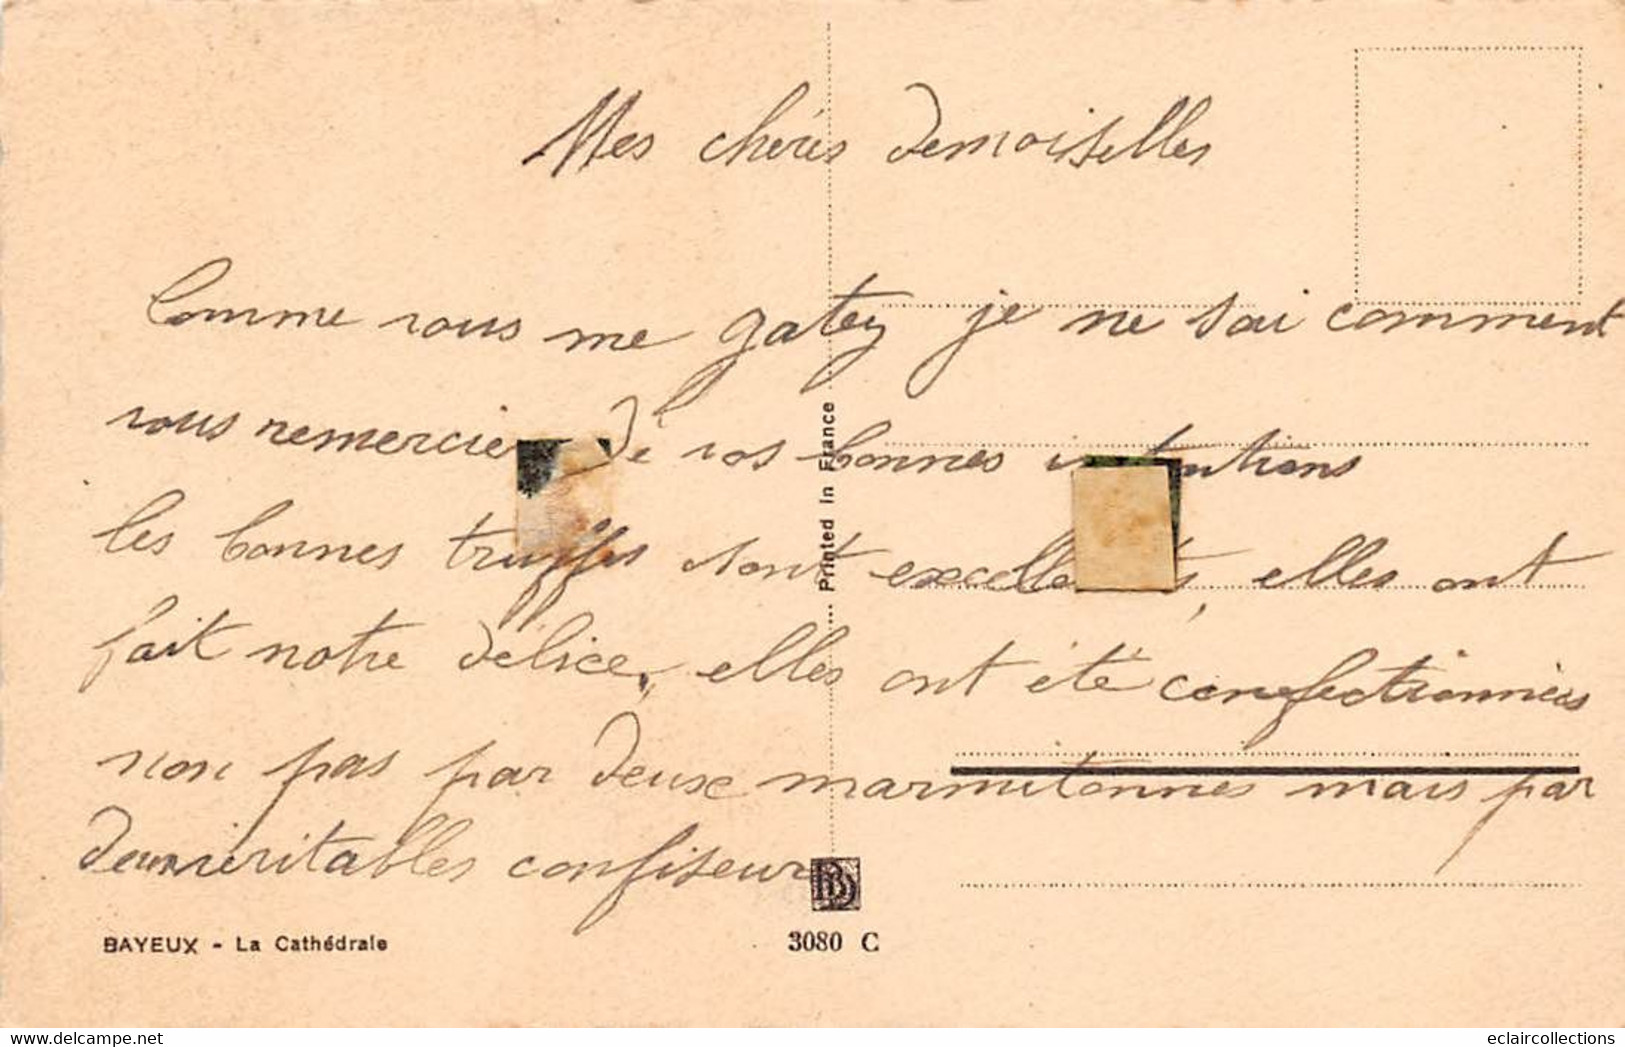 Mes chères demoiselles
Comme vous me gatez je ne sai comment
vous remercier de vos bonnes intentions
les bonnes truffes sont excellentes, elles ont
fait notre délice, elles ont été confectionnées
non pas par deux marmitonnes mais par
véritables confiseurs
Printed in France
BAYEUX - La Cathédrale
BD
3080 C
eclaircollections